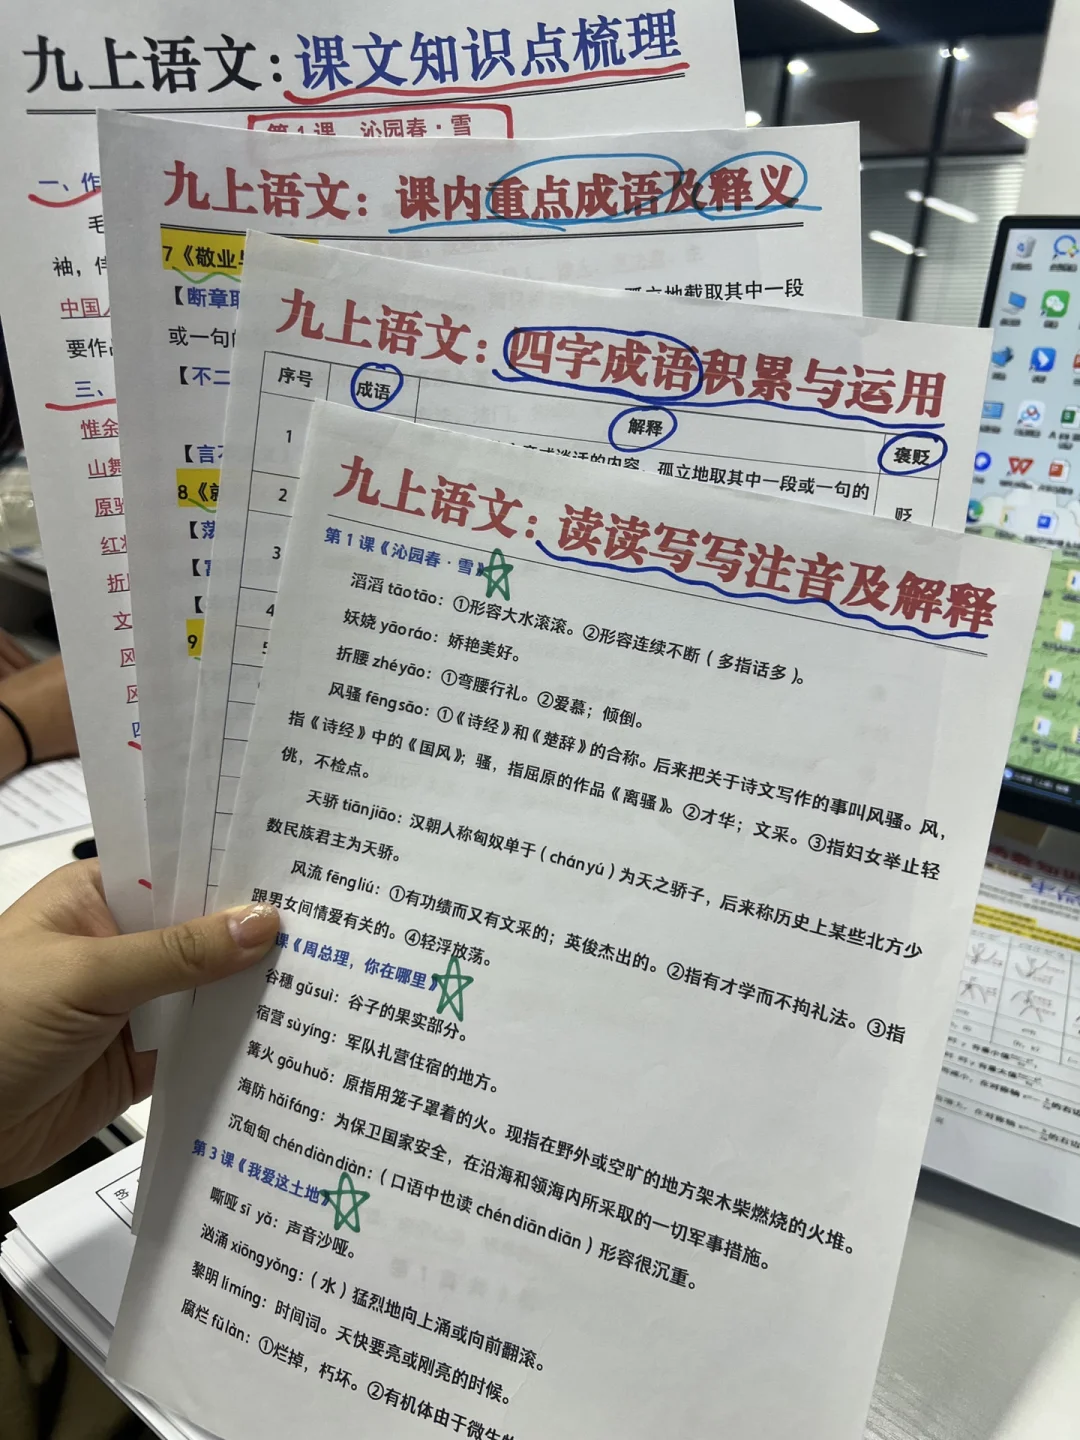 九上语文：课文知识点梳理
第1课 沁园春·雪
一、作
毛
袖，
中国
要作
三、
惟余
山舞
原驰
红装
折
文
风
风
四
九上语文：课内重点成语及释义
7《敬业
孤立地截取其中一段
【断章取
或一句的
【不二
【言不
8《就
【荡
【富
9
九上语文：四字成语积累与运用
序号 成语 解释 褒贬
1
谈话的内容，孤立地取其中一段或一句的
贬
2
3
4
5
九上语文：读读写写注音及解释
第1课《沁园春·雪》
滔滔 tāotāo：①形容大水滚滚。②形容连续不断（多指话多）。
妖娆 yāoráo：娇艳美好。
折腰 zhéyāo：①弯腰行礼。②爱慕；倾倒。
风骚 fēngsāo：①《诗经》和《楚辞》的合称。后来把关于诗文写作的事叫风骚。风，
指《诗经》中的《国风》；骚，指屈原的作品《离骚》。②才华；文采。③指妇女举止轻
佻，不检点。
天骄 tiānjiāo：汉朝人称匈奴单于（chányú）为天之骄子，后来称历史上某些北方少
数民族君主为天骄。
风流 fēngliú：①有功绩而又有文采的；英俊杰出的。②指有才学而不拘礼法。③指
跟男女间情爱有关的。④轻浮放荡。
课《周总理，你在哪里》
谷穗 gǔsuì：谷子的果实部分。
宿营 sùyíng：军队扎营住宿的地方。
篝火 gōuhuǒ：原指用笼子罩着的火。现指在野外或空旷的地方架木柴燃烧的火堆。
海防 hǎifáng：为保卫国家安全，在沿海和领海内所采取的一切军事措施。
沉甸甸 chéndiàndiàn：（口语中也读 chéndiāndiān）形容很沉重。
第3课《我爱这土地》
嘶哑 sī yǎ：声音沙哑。
汹涌 xiōngyǒng：（水）猛烈地向上涌或向前翻滚。
黎明 límíng：时间词。天快要亮或刚亮的时候。
腐烂 fǔlàn：①烂掉，朽坏。②有机体由于微生物